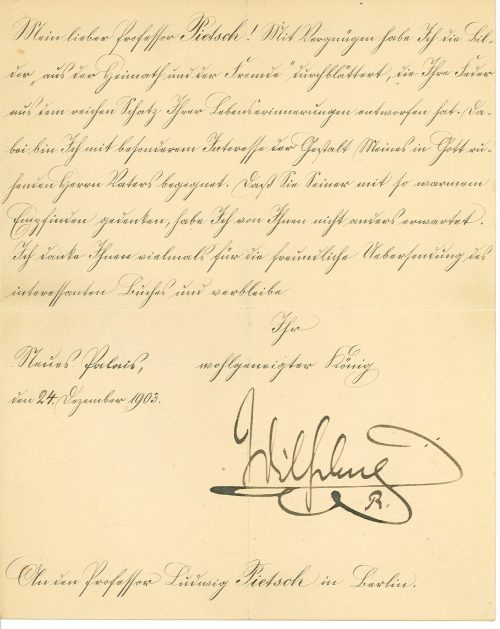 Mein lieber Professor Pietsch! Mit Vergnügen habe Ich die Bil-
der „aus der Heimath und der Fremde“ durchblättert, die Ihre Feder
aus dem reichen Schatz Ihrer Lebenserinnerungen entworfen hat. Da-
bei bin Ich mit besonderem Interesse der Gestalt Meines in Gott ru-
henden Herrn Vaters begegnet. Daß Sie Seiner mit so warmem
Empfinden gedenken, habe Ich von Ihnen nicht anders erwartet.
Ich danke Ihnen vielmals für die freundliche Uebersendung des
interessanten Buches und verbleibe
Ihr
Neues Palais, wohlgeneigter König
den 24. Dezember 1903.
Wilhelm
R.
An den Professor Ludwig Pietsch in Berlin.